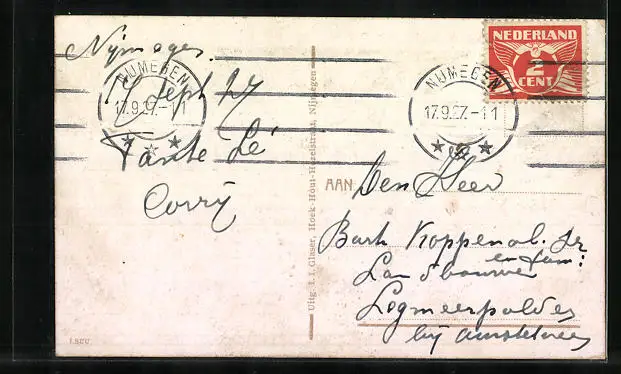 Nijmegen.
17 Sept 27
Tante Lé
Corrij
NIJMEGEN
17.9.27.-11
NIJMEGEN
17.9.27.-11
NEDERLAND
2
CENT
Uitg. I. I. Glaser, Hoek-Hout-Hezelstraat, Nijmegen
AAN:
Den Heer
Bart Koppenol. Jr
en fam:
Landbouwer
Legmeerpolder
bij Amstelveen